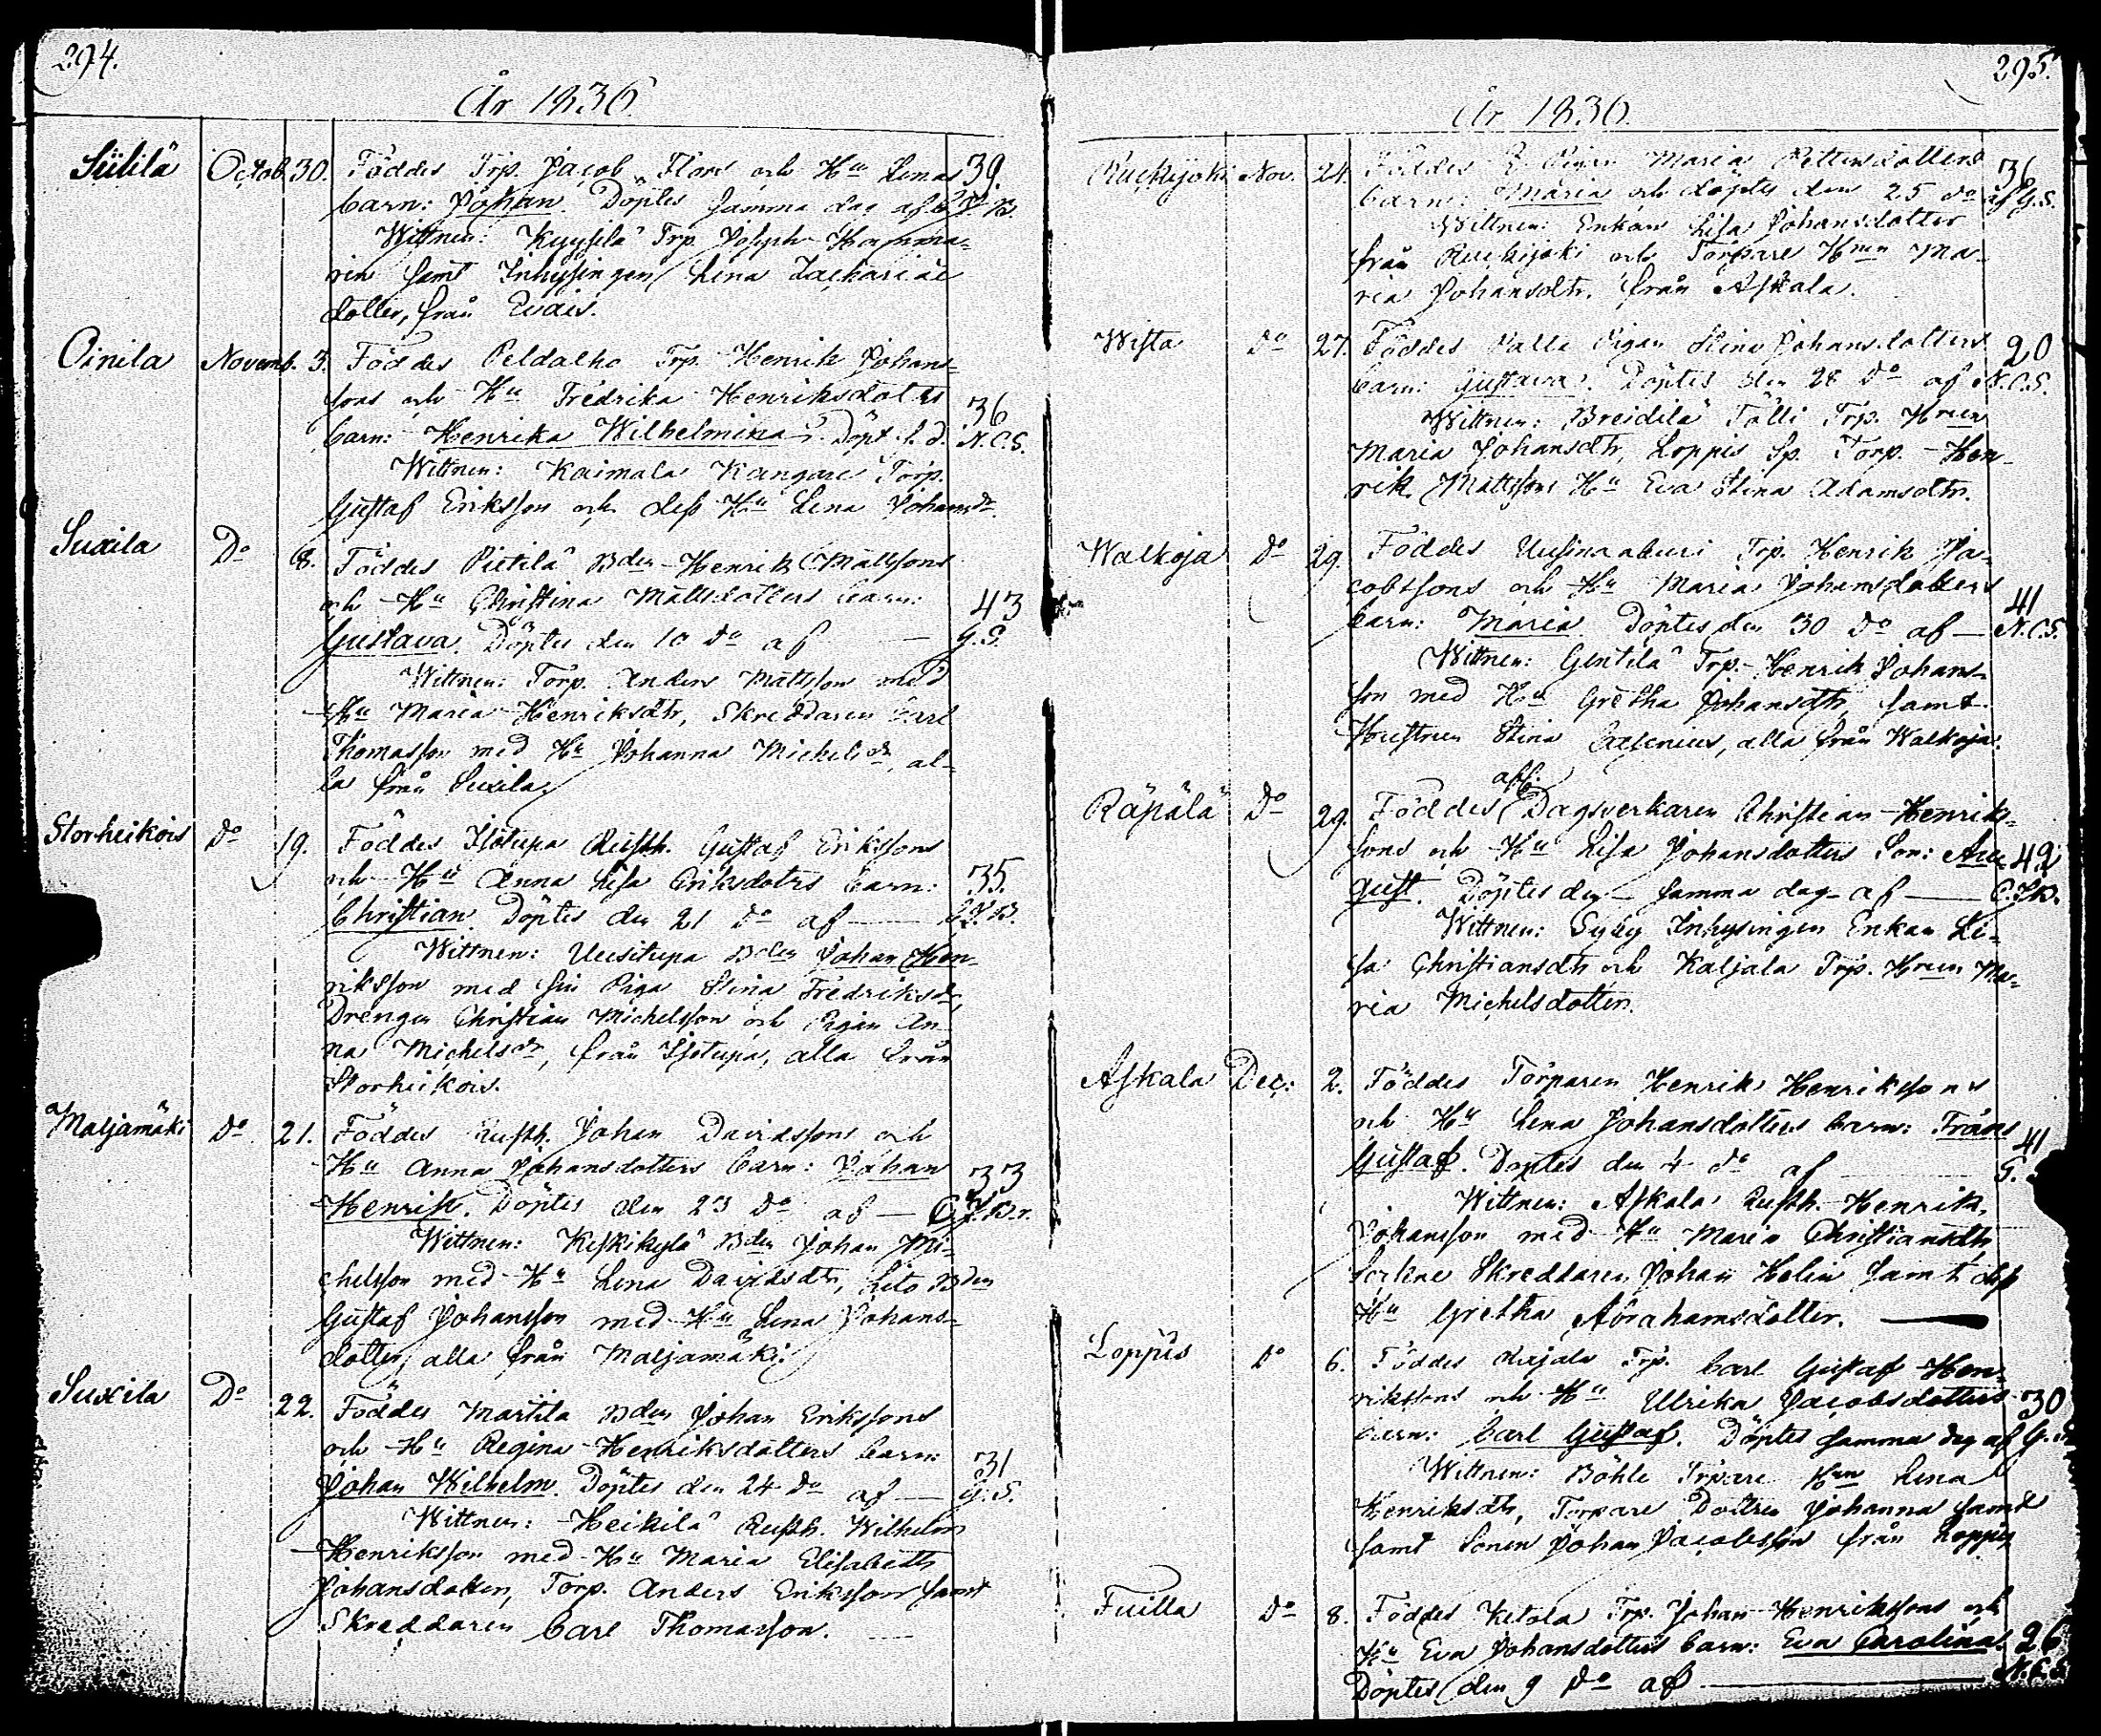 294.
År 1836.
Siülilä Octob. 30. Föddes Trp. Jacob Flors och Hu Lenas 39.
barn: Johan. Döptes samma dag af C.J.B.
Wittnen: Kyysilä Trp. Joseph Hamma-
rin samt Inhysingen Lena Zachariæ
dotter, från Evais.
Oinila Novemb. 3. Föddes Peldalho Trp. Henrik Johans-
sons och Hu Fredrika Henriksdotrs 36
barn: Henrika Wilhelmina. Döpt. s. d. N.C.S.
Wittnen: Kaimala Kangare Torp.
Gustaf Eriksson och dess Hu Lena Johansdr.
Suxila Do 8. Föddes Pietilä Bden Henrik Mattssons
och Hu Christina Mattsdotters barn: 43
Gustava. Döptes den 10 do af — G.S.
Wittnen: Torp. Anders Mattsson med
Hu Maria Henriksdtr, Skreddaren Carl
Thomasson med Hu Johanna Michelsdr, al-
la från Suxila.
Storheikois do 19. Föddes Isotupa Rusth. Gustaf Erikssons
och Hu Anna Lisa Eriksdotrs barn: 35.
Christian. Döptes den 21 do af — C.J.B.
Wittnen: Uusitupa Bden Johan Hen-
riksson med sin Piga Stina Fredriksdr,
Drengen Christian Michelsson och Pigan An-
na Michelsdr, från Isotupa, alla från
Storheikois.
Maljamäki do 21. Föddes Rusth. Johan Davidssons och
Hu Anna Johansdotters barn: Johan 33
Henrik. Döptes den 23 do af — C.J.B.
Wittnen: Keskikylä Bden Johan Mi-
chelsson med Hu Lena Davidsdtr, Lito Bden
Gustaf Johansson med Hu Lena Johans-
dotter, alla från Maljamäki.
Suxila Do 22. Föddes Martila Bden Johan Erikssons
och Hu Regina Henriksdotters barn: 31
Johan Wilhelm. Döptes den 24 do af — G.S.
Wittnen: Heikilä Rusth. Wilhelm
Henriksson med Hu Maria Elisabeth
Johansdotter, Torp. Anders Eriksson samt
Skreddaren Carl Thomasson.
295.
År 1836.
Ruckijoki Nov. 24. Föddes Pigan Maria Pettersdotters 36
barn: Maria och döptes den 25 do af G.S.
Wittnen: Enkan Lisa Johansdotter
från Ruckijoki och Torpare Hrun Ma-
ria Johansdtr. från Askala.
Wista do 27. Föddes Palla Pigan Stina Johansdotters 20
barn: Gustava. Döptes den 28 do af N.C.S.
Wittnen: Breidilä Tölli Trp. Hrun
Maria Johansdtr, Loppis Sp. Torp. Hen-
rik Mattssons Hu Eva Stina Adamsdtr.
Walkoja do 29. Föddes Uusinaaburi Trp. Henrik Ja-
cobssons och Hu Maria Johansdotters 41
barn: Maria. Döptes den 30 do af — N.C.S.
Wittnen: Gentilä Trp. Henrik Johans-
son med Hu Gretha Johansdtr, samt
Hustrun Stina Cajenius, alla från Walkoja.
Räpälä do 29. Föddes aff. Dagsverkaren Christian Henriks-
sons och Hu Lisa Johansdotters Son: Au- 42
gust. Döptes den — samma dag af — C.J.B.
Wittnen: Syby Inhysingen Enkan Li-
sa Christiansdtr och Kaljala Trp. Hrun Ma-
ria Michelsdotter.
Askala Dec: 2. Föddes Torparen Henrik Henrikssons
och Hu Lena Johansdotters barn: Frans 41
Gustaf. Döptes den 4 do af S.
Wittnen: Askala Rusth. Henrik
Johansson med Hu Maria Christiansdtr
Sockne Skreddaren Johan Helin samt dess
Hu Gretha Abrahamsdotter.
Loppis do 6. Föddes Rajala Trp. Carl Gustaf Hen-
rikssons och Hu Ulrika Jacobsdotters 30
barn: Carl Gustaf. Döptes samma dag af G.
Wittnen: Böhle Trpare Hrun Lena
Henriksdtr, Torpare Dottren Johanna samt
samt Sonen Johan Jacobsson från Loppis
Fuilla do 8. Föddes Ketola Trp. Johan Henrikssons och
Hu Eva Johansdotters barn: Eva Carolina. 26
Döptes den 9 do af — N.C.S.